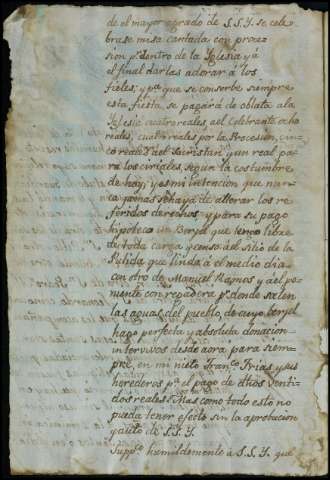 de el mayor agrado de S.S.Y. se cele-
brase misa cantada con proce-
sion pr. dentro de la Yglesia y á
el final darlas adorar á los
fieles; y pa. que se conserbe siempre
esta fiesta se pagará de oblata ala
Yglesia cuatro reales, ael Celebrante ocho
reales, cuatro reales por la Procesion, cin-
co reales ael Sacristan y un real pa-
ra los ciriales, segun la costumbre
de hoy; y es mi intencion que nun-
ca jamas se haya de alterar los re-
feridos derechos y para su pago
hipoteco un Berjel que tengo libre
de toda carga y censo ael Sitio de la
que linda á el medio dia
con otro de Manuel Ramos y ael po-
niente con repadera pr. donde salen
las aguas del pueblo, de cuyo berjel
hago perfecta y absoluta donacion
intervivos desde aora para siem-
pre, en mi nieto Franco. Frias y sus
herederos pa. el pago de dhos venti
dos reales. Mas como todo esto no
pueda tener efecto sin la aprobacion
y auto de S.S.Y.
Suppco. humildemente á S.S.Y. que